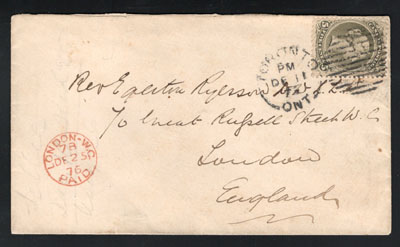 TORONTO
PM
DE 11
ONT
Rev Egerton Ryerson
70 Great Russell Street W.C.
London
England
LONDON-W.C
7B
DE 25
76
PAID